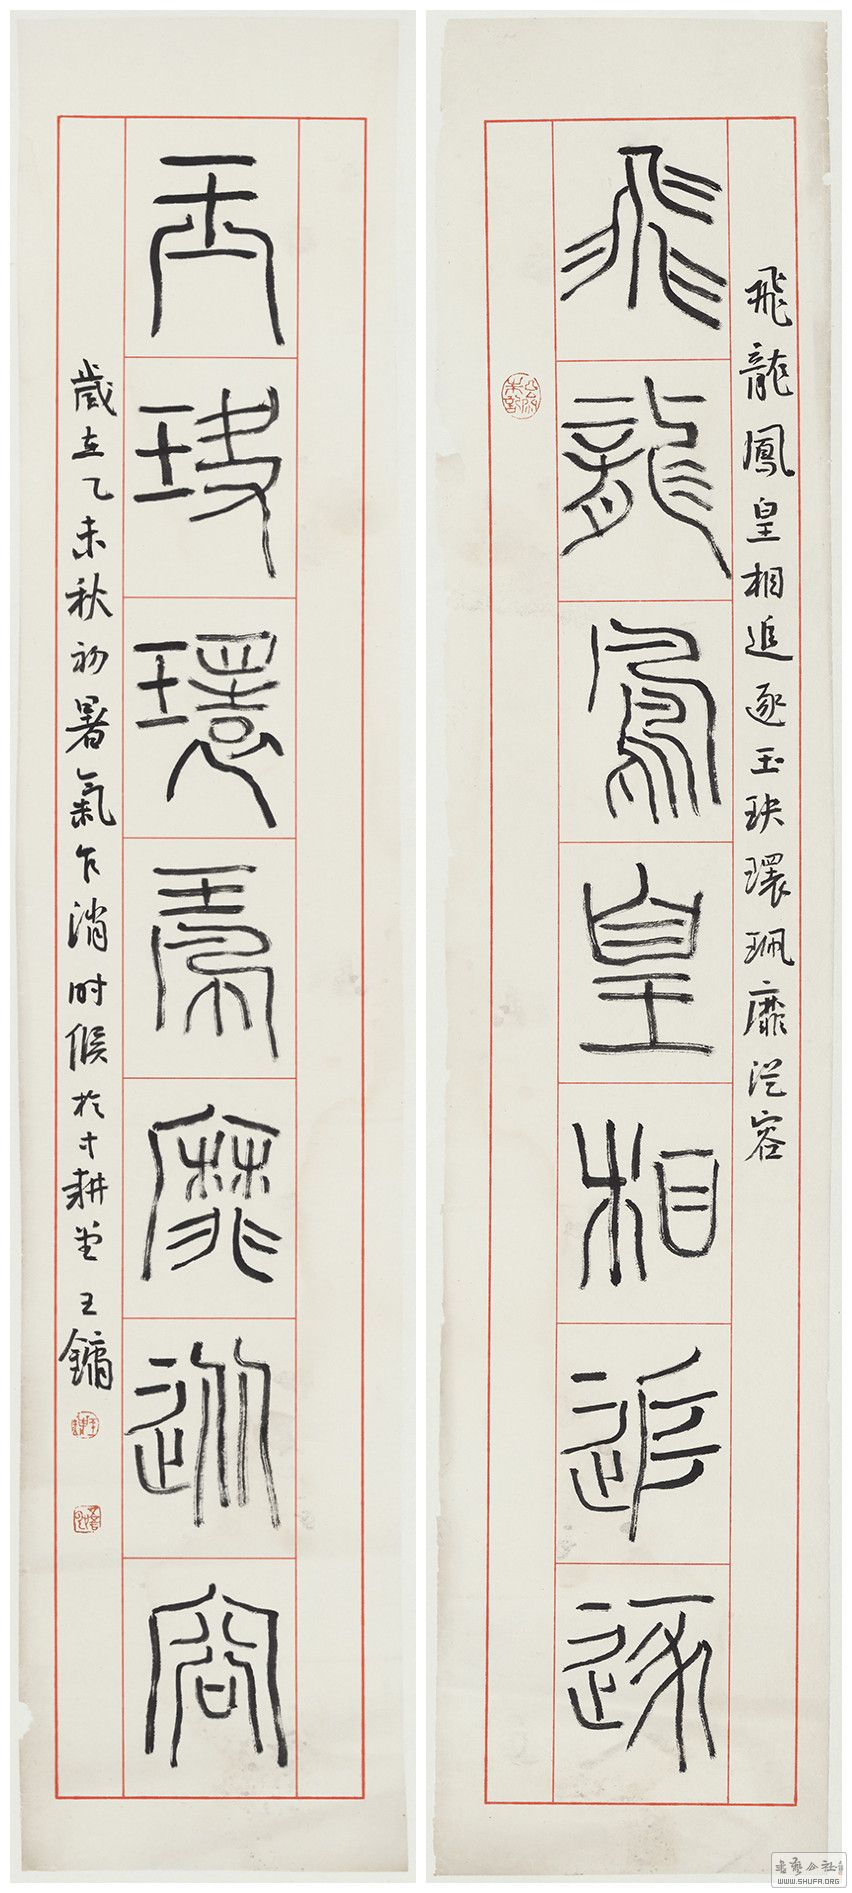 飛龍鳳皇相追逐玉玦環珮靡從容
飛龍鳳皇相追逐
玉玦環珮靡從容
歲在乙未秋初暑氣乍消时候於寸耕堂王鏞
WWW.SHUFA.ORG